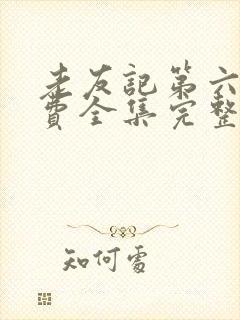 老友記第六
費全集完整
知何處